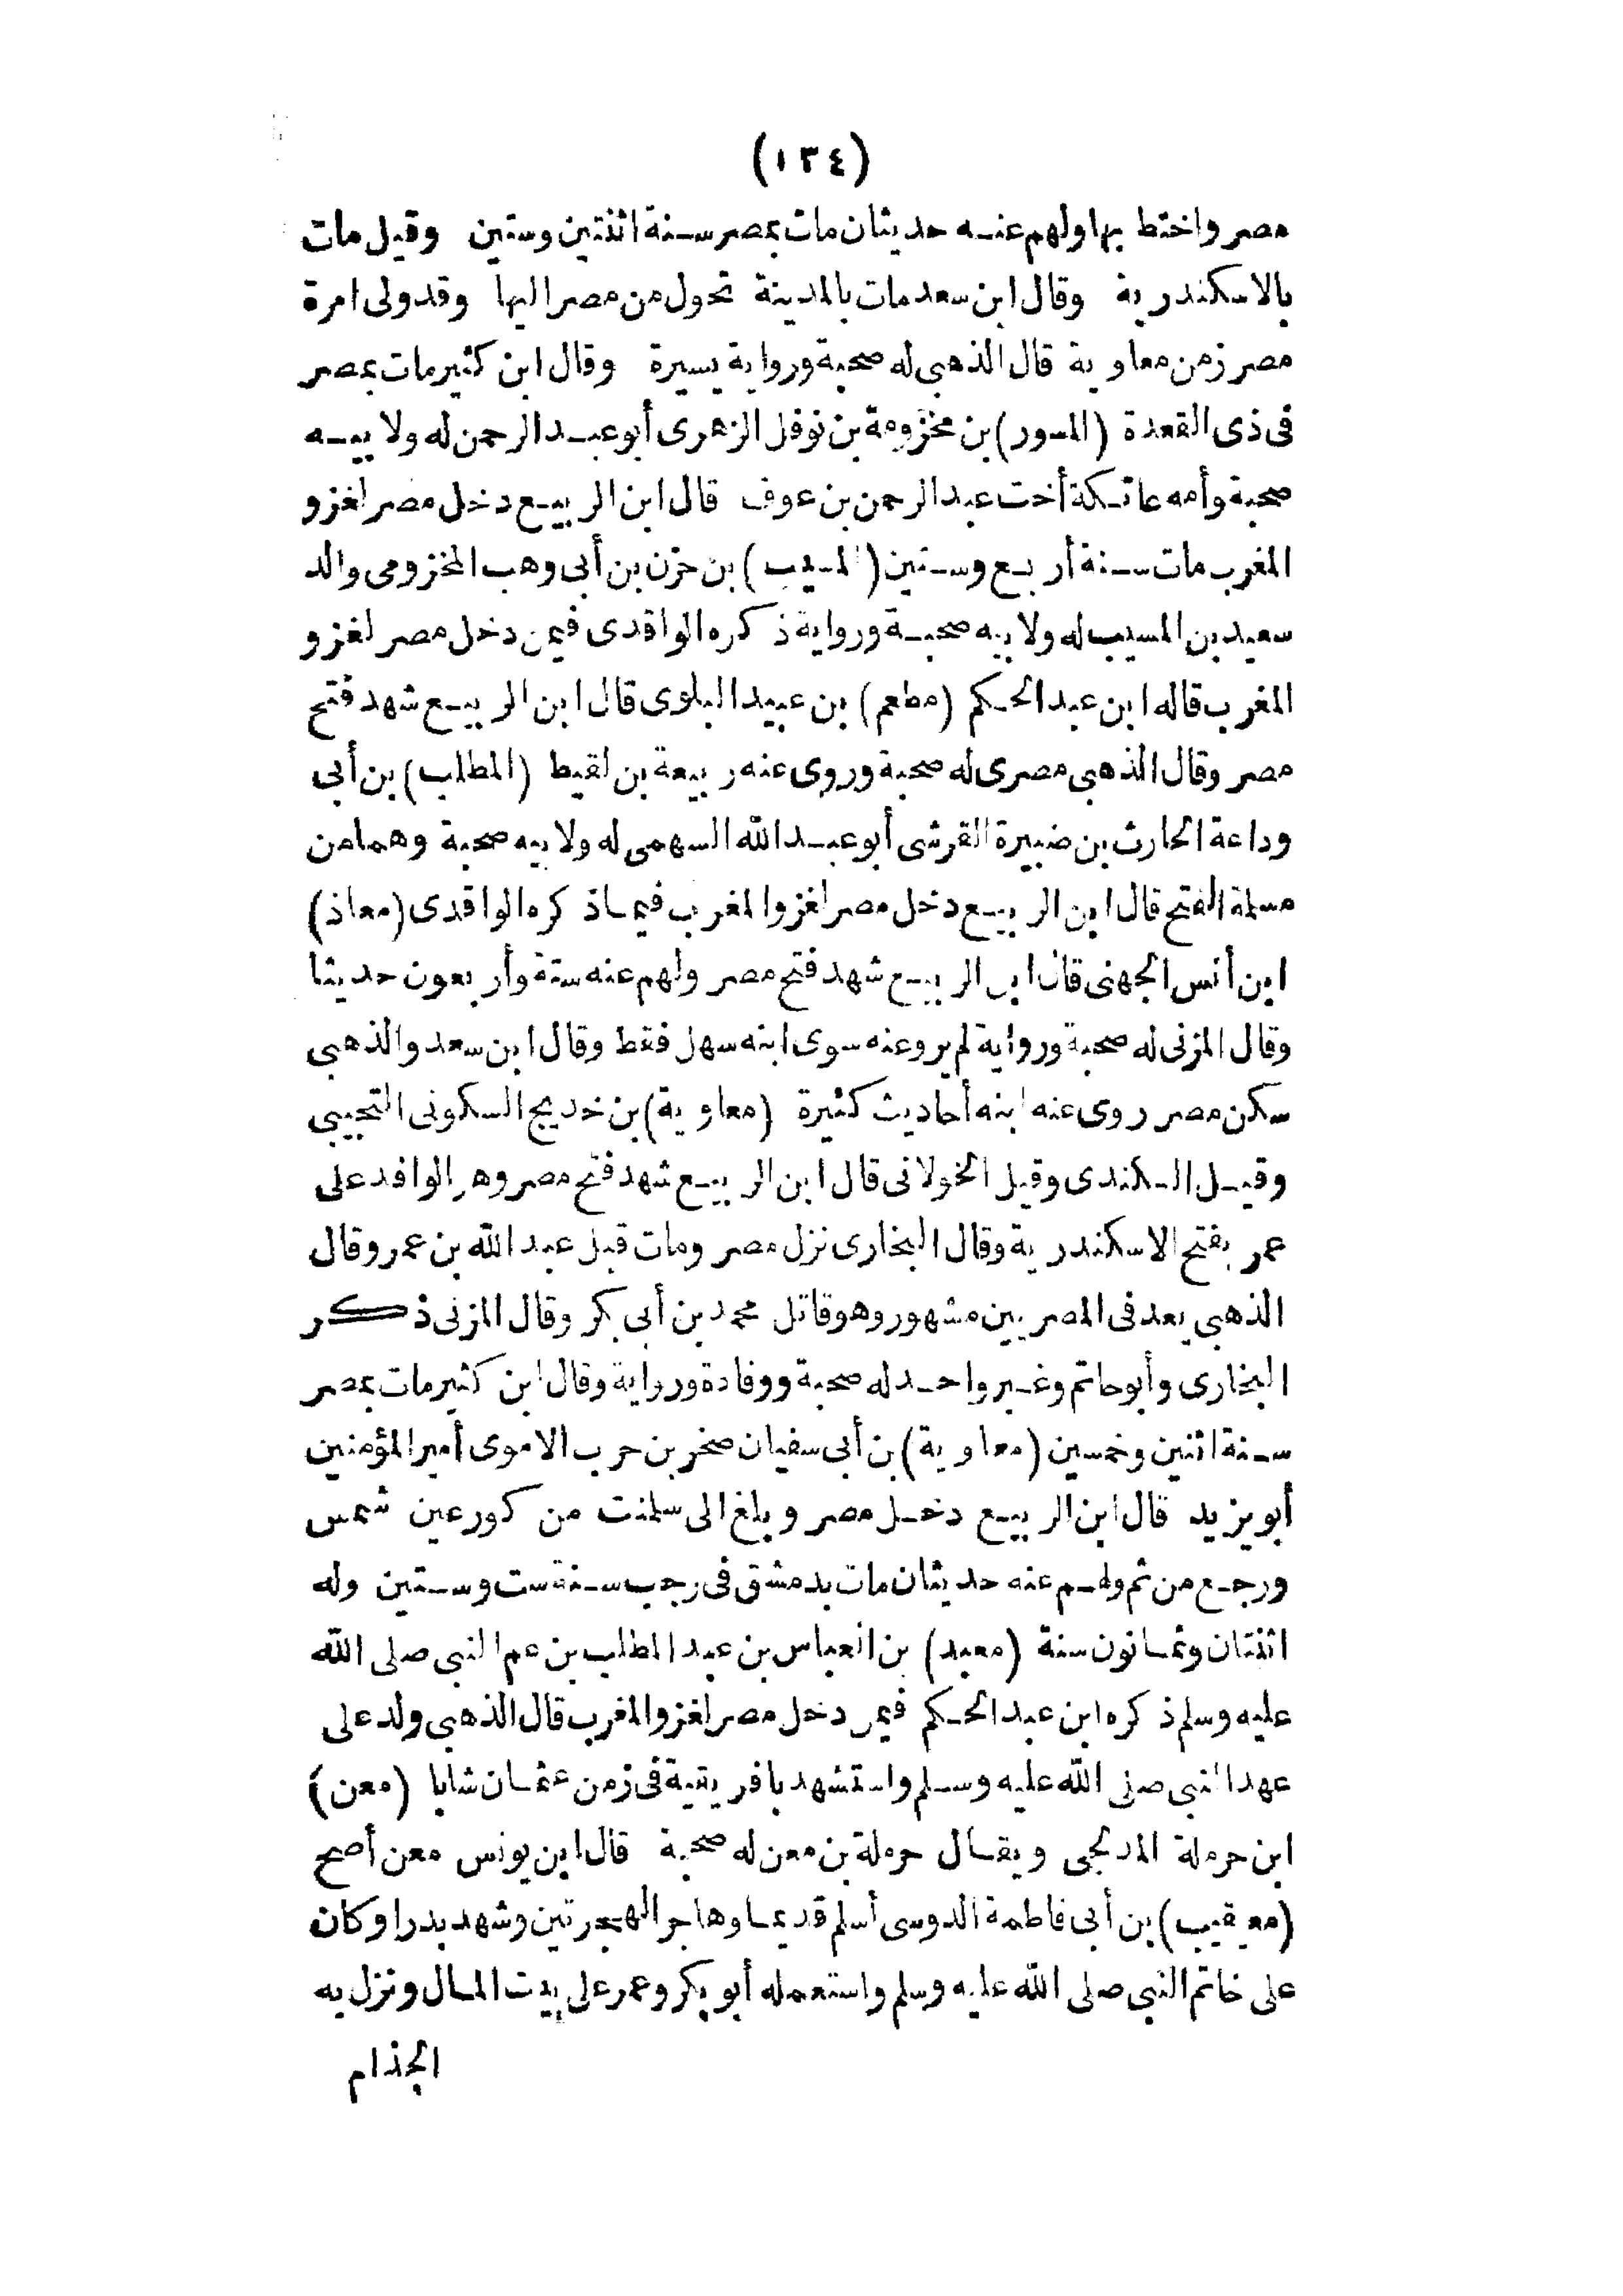 (١٣٤)
مصر واختط بها ولهم عنه حديثان مات بمصر سنة اثنتين وستين وقيل مات
بالاسكندرية وقال ابن سعد مات بالمدينة تحول من مصر اليها وقد ولى امرة
مصر زمن معاوية قال الذهبى له صحبة ورواية يسيرة وقال ابن كثير مات بمصر
فى ذى القعدة (المسور) بن مخزومة بن نوفل الزهرى أبو عبد الرحمن له ولابيه
صحبة وأمه عاتكة أخت عبد الرحمن بن عوف قال ابن الربيع دخل مصر لغزو
المغرب مات سنة أربع وستين (المسيب) بن حزن بن أبى وهب المخزومى والد
سعيد بن المسيب له ولابيه صحبة ورواية ذكره الواقدى فيمن دخل مصر لغزو
المغرب قاله ابن عبد الحكم (مطعم) بن عبيد البلوى قال ابن الربيع شهد فتح
مصر وقال الذهبى مصرى له صحبة وروى عنه ربيعة بن لقيط (المطلب) بن أبى
وداعة الحارث بن ضبيرة القرشى أبو عبد الله السهمى له ولابيه صحبة وهما من
مسلمة الفتح قال ابن الربيع دخل مصر لغزو المغرب فيما ذكره الواقدى (معاذ)
ابن أنس الجهنى قال ابن الربيع شهد فتح مصر ولهم عنه ستة وأربعون حديثا
وقال المزنى له صحبة ورواية لم يرو عنه سوى ابنه سهل فقط وقال ابن سعد والذهبى
سكن مصر روى عنه ابنه أحاديث كثيرة (معاوية) بن خديج السكونى التجيبى
وقيل الكندى وقيل الخولانى قال ابن الربيع شهد فتح مصر وهو الوافد على
عمر بفتح الاسكندرية وقال البخارى نزل مصر ومات قبل عبد الله بن عمر وقال
الذهبى يعد فى المصريين مشهور وهو قاتل محمد بن أبى بكر وقال المزنى ذكر
البخارى وأبو حاتم وغير واحد له صحبة ووفادة ورواية وقال ابن كثير مات بمصر
سنة اثنين وخمسين (معاوية) بن أبى سفيان صخر بن حرب الاموى أمير المؤمنين
أبو يزيد قال ابن الربيع دخل مصر وبلغ الى سلمنت من كور عين شمس
ورجع من ثم ولهم عنه حديثان مات بدمشق فى رجب سنة ست وستين وله
اثنتان وثمانون سنة (معبد) بن العباس بن عبد المطلب بن عم النبى صلى الله
عليه وسلم ذكره ابن عبد الحكم فيمن دخل مصر لغزو المغرب قال الذهبى ولد على
عهد النبى صلى الله عليه وسلم واستشهد بافريقية فى زمن عثمان شابا (معن)
ابن حرملة المدلجى ويقال حرملة بن معن له صحبة قال ابن يونس معن أصح
(معيقيب) بن أبى فاطمة الدوسى أسلم قديما وهاجر الهجرتين وشهد بدرا وكان
على خاتم النبى صلى الله عليه وسلم واستعمله أبو بكر وعمر على بيت المال ونزل به
الجذام